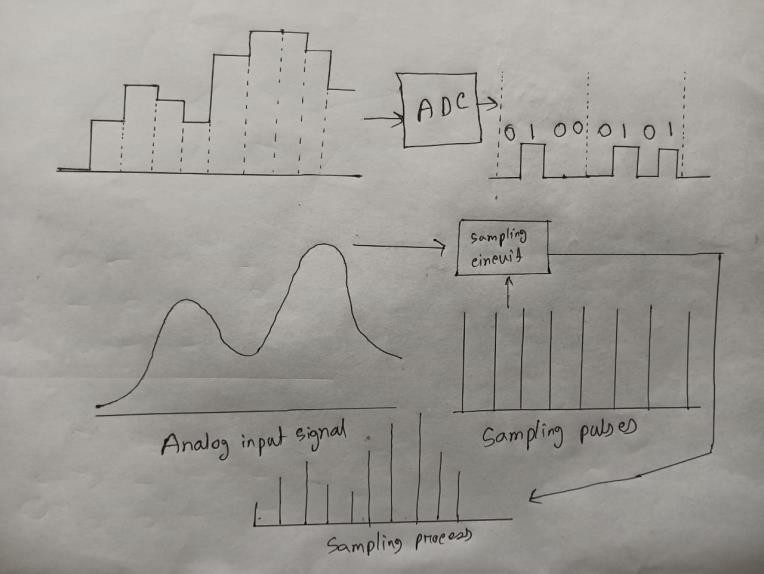 ADC
0 1 0 0 0 1 0 1
Sampling
circuit
Analog input signal
Sampling pulses
Sampling process